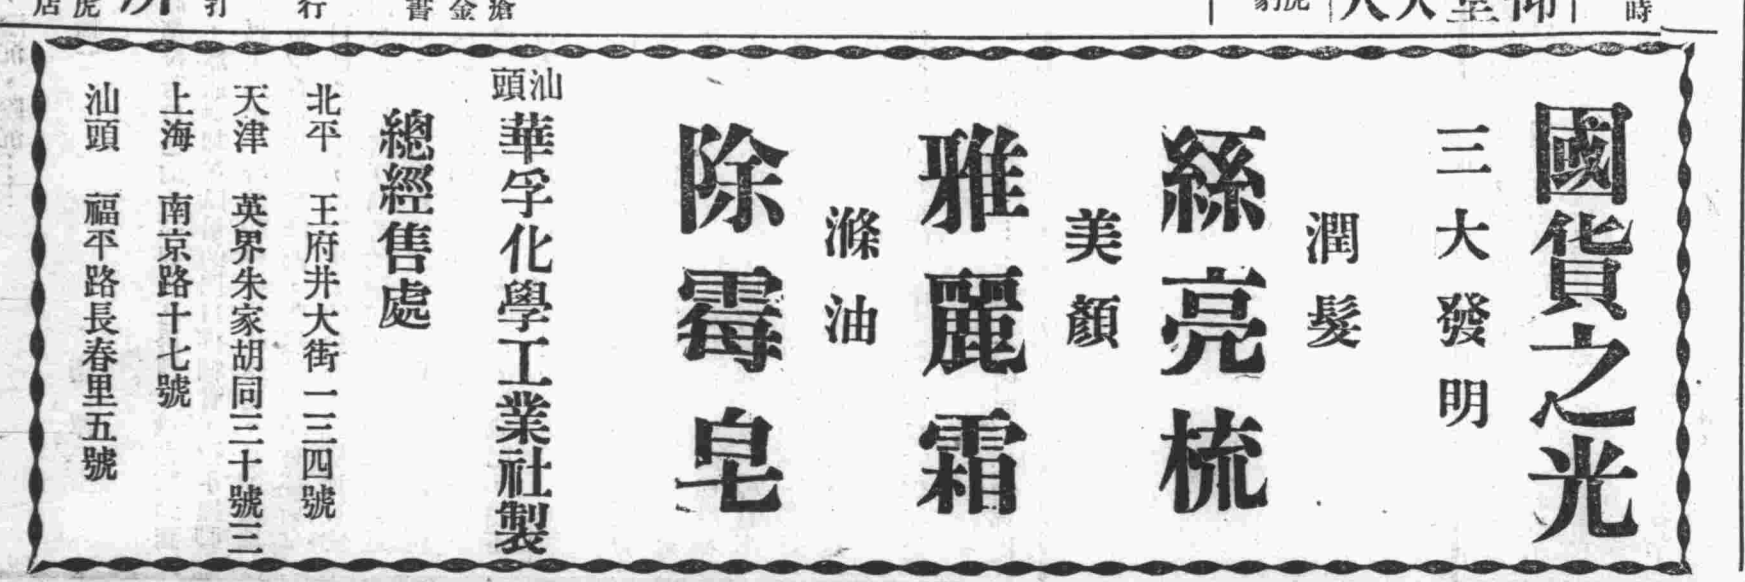 國貨之光
三大發明
潤髮
絲亮梳
美顏
雅麗霜
滌油
除霉皂
汕頭
華孚化學工業社製
總經售處
北平 王府井大街一三四號
天津 英界朱家胡同三十號三
上海 南京路十七號
汕頭 福平路長春里五號